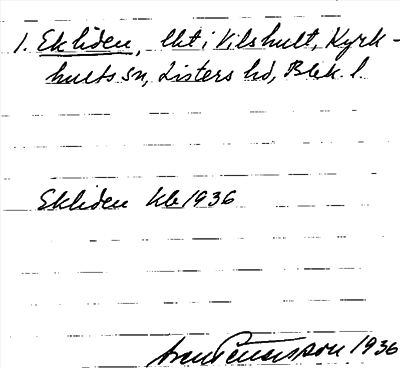 1. Ekliden, lht i Vilshult, Kyrk-
hults sn, Listers hd, Blek. l.
Ekliden Kb 1936
1936